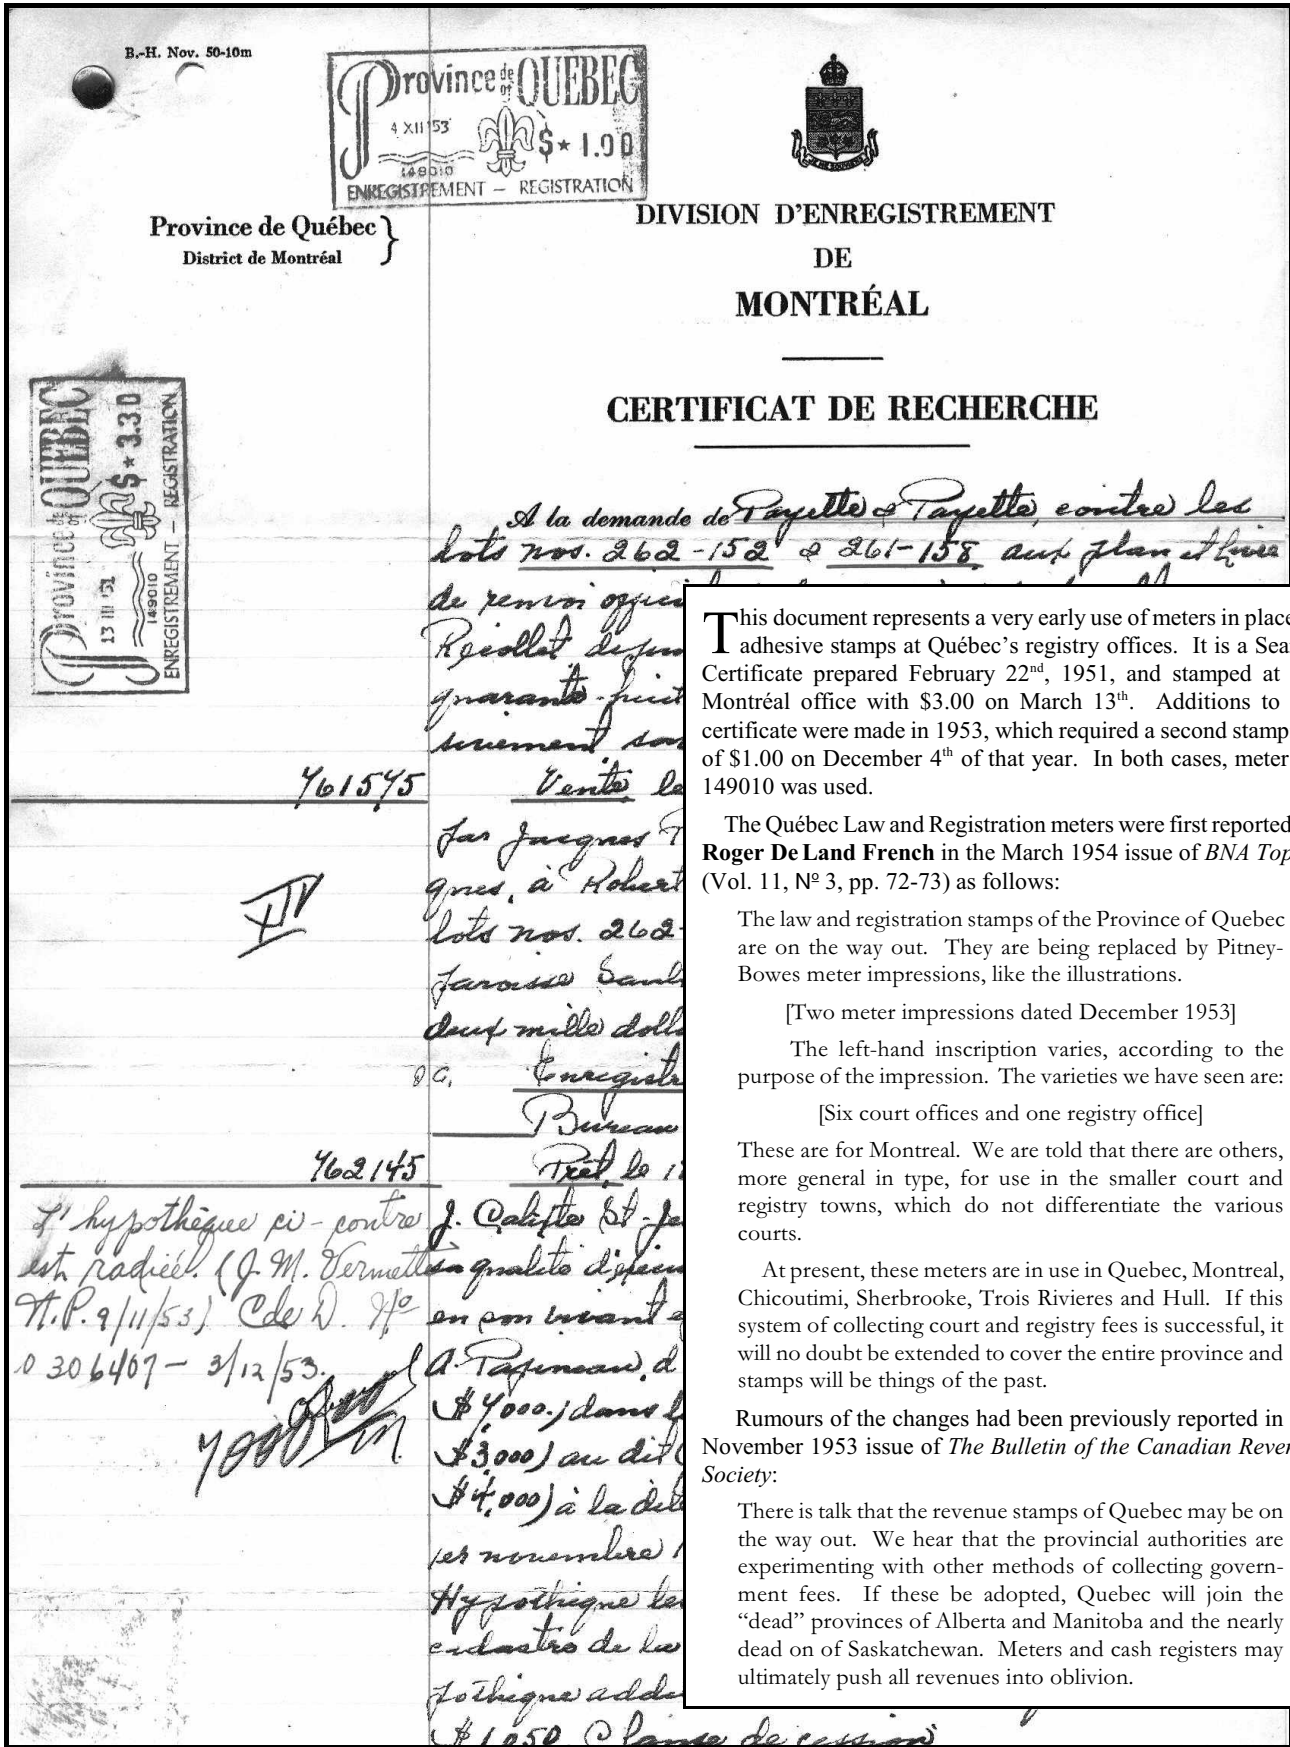 B.-H. Nov. 50-10m
Province de of QUEBEC
4 XII '53
$★ 1.00
149010
ENREGISTREMENT — REGISTRATION
Province de Québec }
District de Montréal
DIVISION D'ENREGISTREMENT
DE
MONTRÉAL
CERTIFICAT DE RECHERCHE
Province de of QUEBEC
13 III '51
$★ 3.30
149010
ENREGISTREMENT — REGISTRATION
A la demande de Payette & Payette, contre les
lots nos. 262-152 & 261-158 aux plan et livre
de renvoi
Recollet
quarante-huit
761575
Vente, le
par Jacques
à Robert
lots nos. 262-
deux mille
Bureau
762145
Prêt, le
L'hypothèque ci-contre
est radiée. (J. M. Vermette
N.P. 9/11/53) Cde D. No
306407 — 3/12/53.
J. Calixte St-Je
sa qualité
en son vivant
A. Papineau, d
dans
$3,000) au dit
$4,000) à la dite
1er novembre
Hypothèque les
cadastre de la
$1,050 Clause de cession
This document represents a very early use of meters in place
adhesive stamps at Québec's registry offices. It is a Sea
Certificate prepared February 22nd, 1951, and stamped at
Montréal office with $3.00 on March 13th. Additions to
certificate were made in 1953, which required a second stamp
of $1.00 on December 4th of that year. In both cases, meter
149010 was used.
The Québec Law and Registration meters were first reported
Roger De Land French in the March 1954 issue of BNA Top
(Vol. 11, Nº 3, pp. 72-73) as follows:
The law and registration stamps of the Province of Quebec
are on the way out. They are being replaced by Pitney-
Bowes meter impressions, like the illustrations.
[Two meter impressions dated December 1953]
The left-hand inscription varies, according to the
purpose of the impression. The varieties we have seen are:
[Six court offices and one registry office]
These are for Montreal. We are told that there are others,
more general in type, for use in the smaller court and
registry towns, which do not differentiate the various
courts.
At present, these meters are in use in Quebec, Montreal,
Chicoutimi, Sherbrooke, Trois Rivieres and Hull. If this
system of collecting court and registry fees is successful, it
will no doubt be extended to cover the entire province and
stamps will be things of the past.
Rumours of the changes had been previously reported in
November 1953 issue of The Bulletin of the Canadian Rever
Society:
There is talk that the revenue stamps of Quebec may be on
the way out. We hear that the provincial authorities are
experimenting with other methods of collecting govern-
ment fees. If these be adopted, Quebec will join the
“dead” provinces of Alberta and Manitoba and the nearly
dead on of Saskatchewan. Meters and cash registers may
ultimately push all revenues into oblivion.